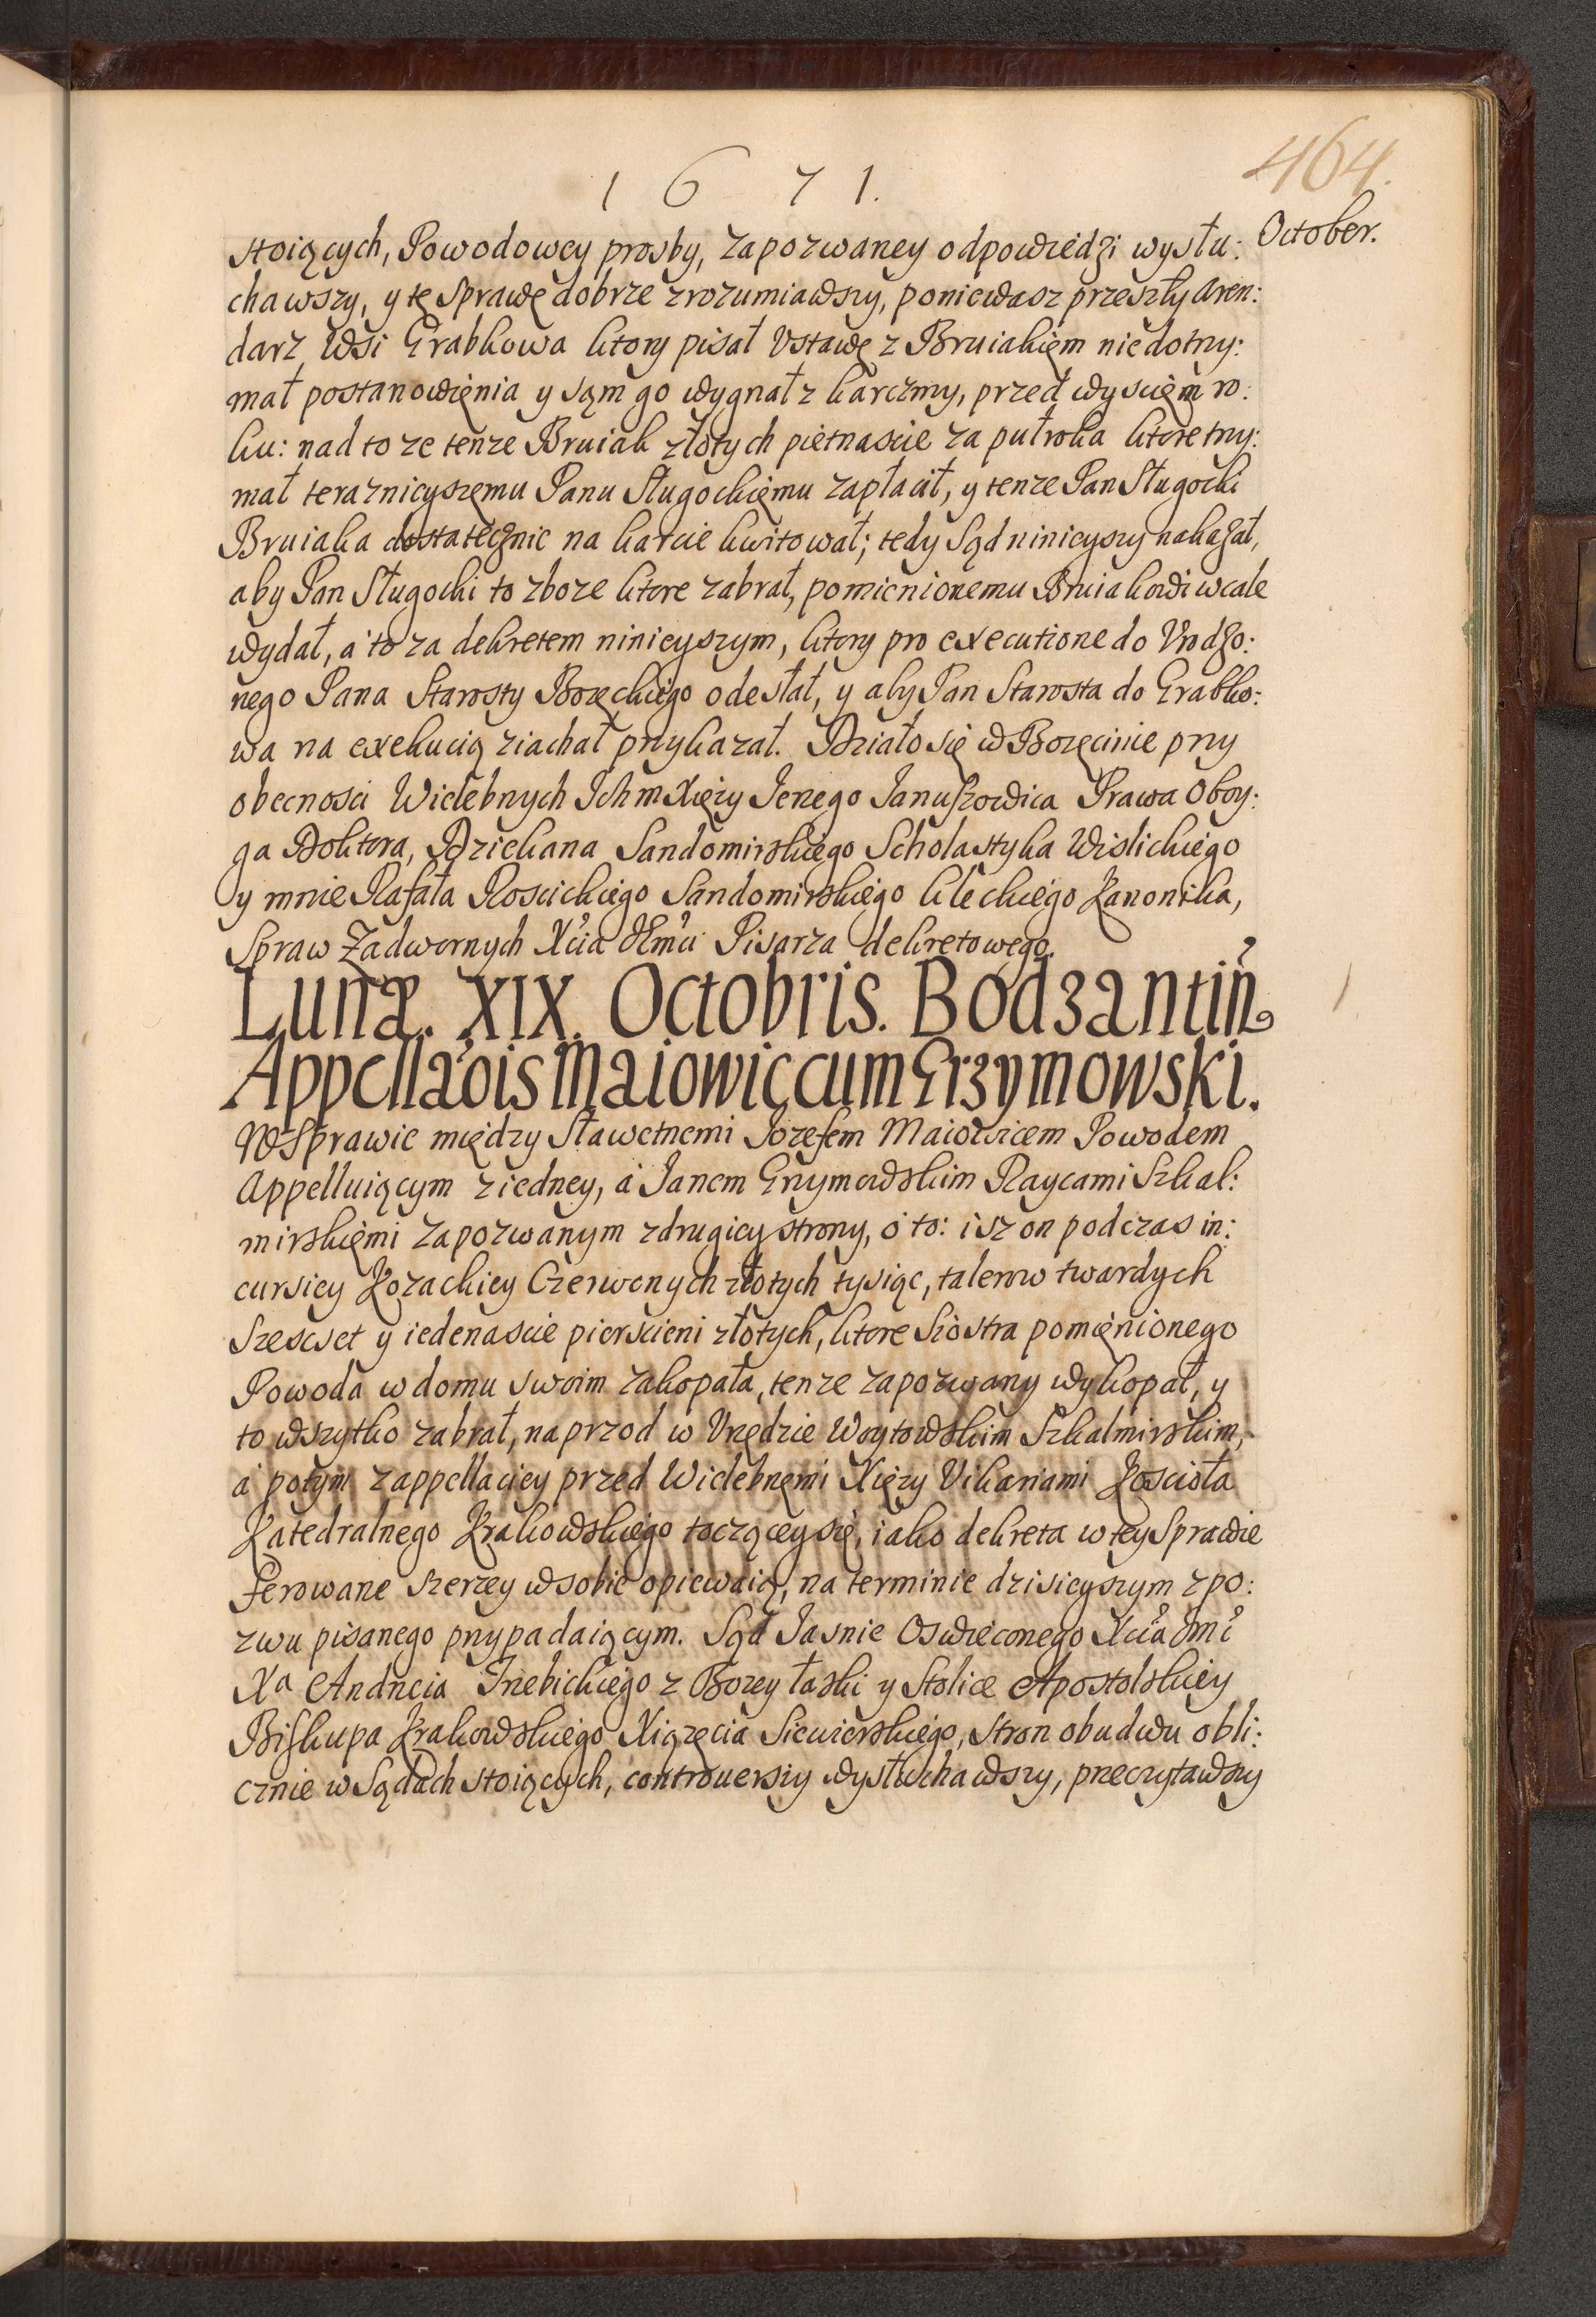 464.
1 6 7 1.
October.
stoiących, Powodowey prosby, zapozwaney odpowiedzi wysłu:
chawszy, y tę Sprawę dobrze zrozumiawszy, poniewasz przeszły Aren:
darz Wsi Grabkowa ktory pisał Ustawę z Bruiakięm niedotrzy:
mał postanowięnia y sąm go wygnał z karczmy, przed wyscięm ro:
ku: nad to ze tenze Bruiak złotych piętnascie za pułroka ktore trzy:
mał teraznieyszęmu Panu Sługockięmu zapłacił, y tenze Pan Sługocki
Bruiaka dostatecznie na karcie kwitował; tedy Sąd ninieyszy nakazał,
aby Pan Sługocki to zboze ktore zabrał, pomienionemu Bruiakowi wcale
wydał, a to za dekretem ninieyszym, ktory pro executione do Urodzo:
nego Pana Starosty Bozęckiego odesłał, y aby Pan Starosta do Grabko:
wa na exekucią ziachał przykazał. Działo się w Bozęcinie przy
obecnosci Wielebnych Ichm Xięzy Jerzego Januszowica Prawa Oboy:
ga Doktora, Dziekana Sandomirskiego Scholastyka Wislickiego
y mnie Rafała Roscickiego Sandomirskiego Kieleckiego Kanonika,
Spraw Zadwornych Xcia JEmci Pisarza dekretowego.
Lunæ. XIX. Octobris. Bodzantin
Appellaõis Maiowic cum Grzymowski.
W Sprawie między Sławetnemi Jozefem Maiowicem Powodem
Appelluiącym z iedney, a Janem Grzymowskim Raycami Szkal:
mirskięmi zapozwanym z drugiey strony, o to: isz on podczas in:
cursiey Kozackiey Czerwonych złotych tysiąc, talerow twardych
Szescset y iedenascie pierscieni złotych, ktore Siostra pomięnionego
Powoda w domu swoim zakopała, tenze zapozwany wykopał, y
to wszytko zabrał, naprzod w Urzędzie Woytowskim Szkalmirskim,
a potym z appellaciey przed Wielebnęmi Xięzy Vikariami Koscioła
Katedralnego Krakowskiego toczącey się, iako dekreta w tey Sprawie
ferowane szerzey w sobie opiewaią, na terminie dzisieyszym z po:
zwu pisanego przypadaiącym. Sąd Jasnie Oswieconego Xcia Jmci
Xa Andrzeia Trzebickiego z Bozey łaski y Stolice Apostolskiey
Biskupa Krakowskiego Xiązęcia Siewierskiego, Stron obudwu obli:
cznie w Sądach stoiących, controuersiy wysłuchawszy, przeczytawszy